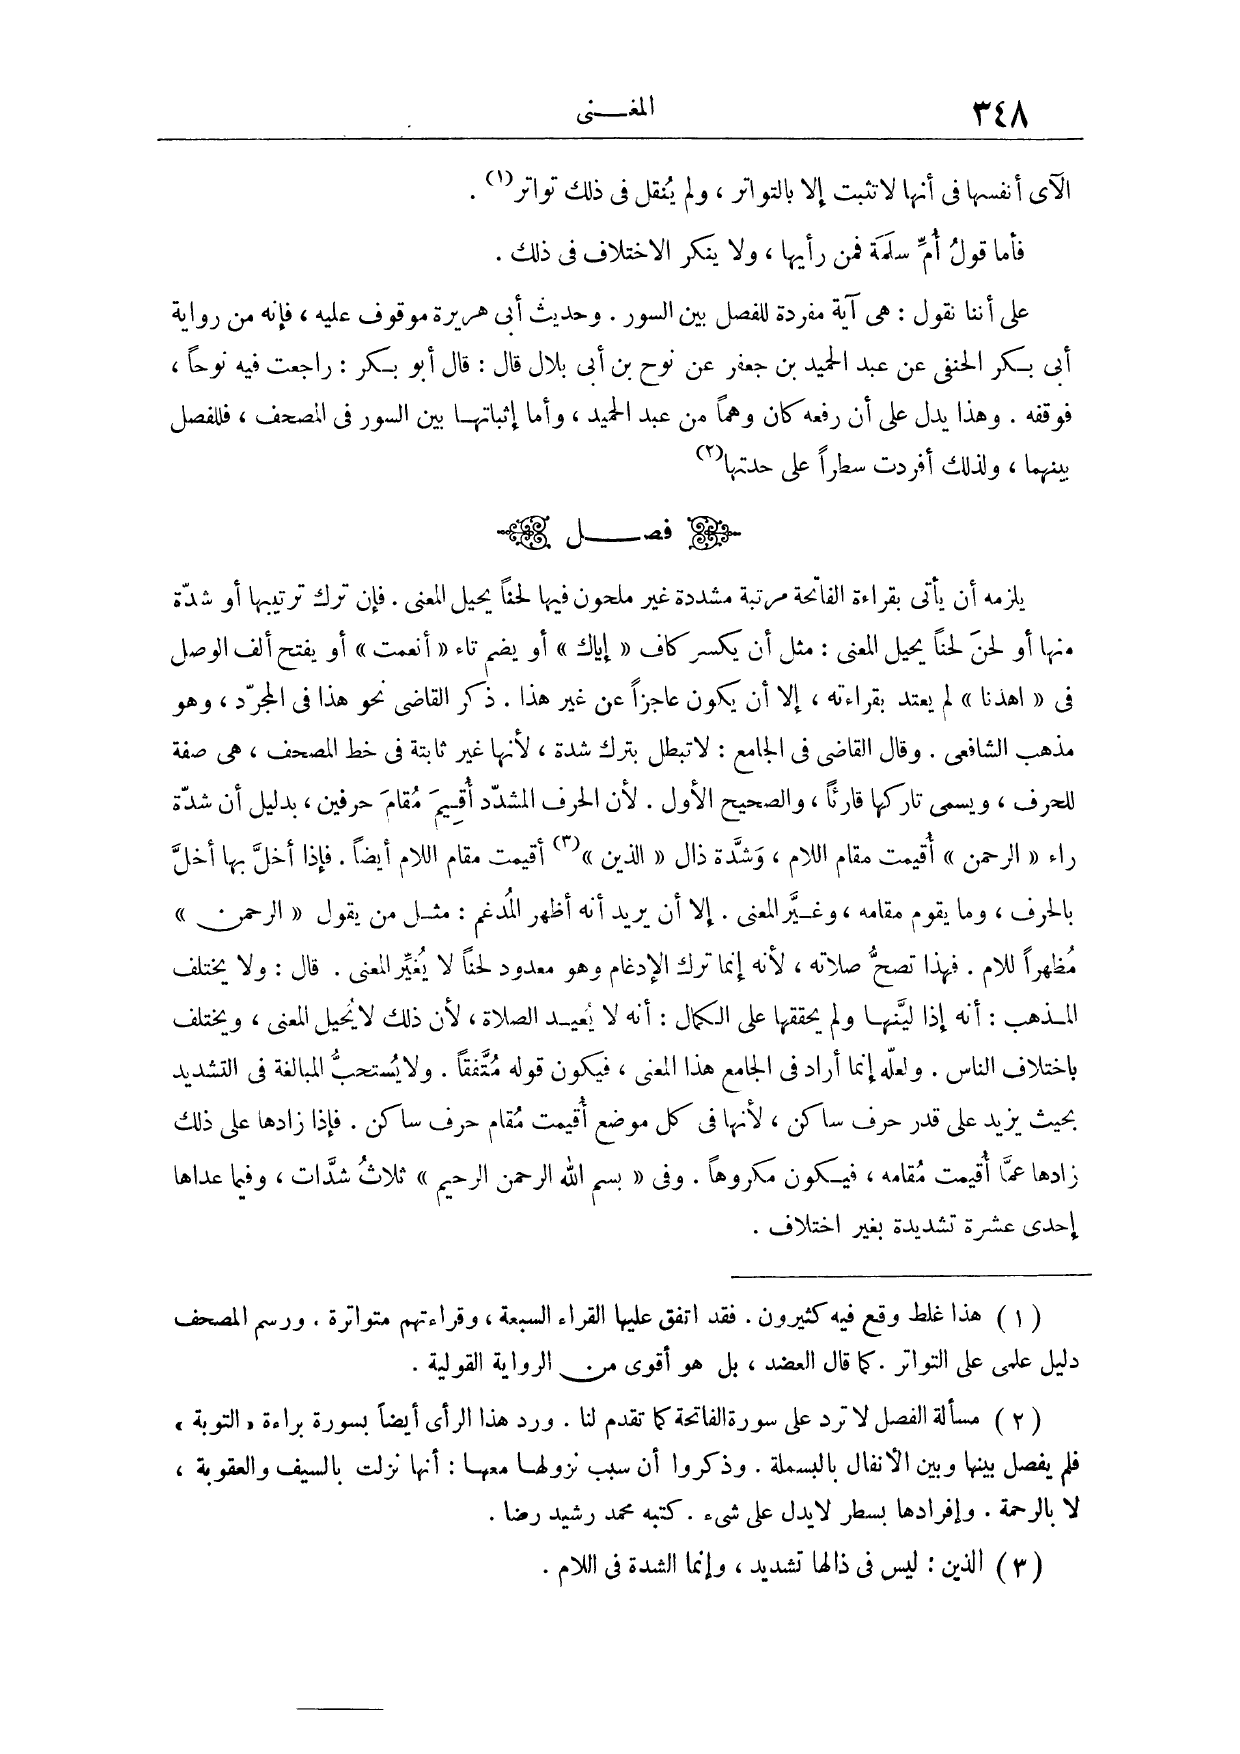 ٣٤٨
المغـــنى
الآى أنفسها فى أنها لا تثبت إلا بالتواتر ، ولم يُنقل فى ذلك تواتر(١) .
فأما قولُ أُمِّ سلَمَة فمن رأيها ، ولا ينكر الاختلاف فى ذلك .
على أننا نقول : هى آية مفردة للفصل بين السور . وحديث أبى هريرة موقوف عليه ، فإنه من رواية
أبى بكر الحنفى عن عبد الحميد بن جعفر عن نوح بن أبى بلال قال : قال أبو بكر : راجعت فيه نوحاً ،
فوقفه . وهذا يدل على أن رفعه كان وهماً من عبد الحميد ، وأما إثباتهـا بين السور فى المصحف ، فللفصل
بينهما ، ولذلك أفردت سطراً على حدتها(٢)
فصـــــل
يلزمه أن يأتى بقراءة الفاتحة مرتبة مشددة غير ملحون فيها لحناً يحيل المعنى . فإن ترك ترتيبها أو شدّة
منها أو لحنَ لحناً يحيل المعنى : مثل أن يكسر كاف « إياك » أو يضم تاء « أنعمت » أو يفتح ألف الوصل
فى « اهدنا » لم يعتد بقراءته ، إلا أن يكون عاجزاً عن غير هذا . ذكر القاضى نحو هذا فى المجرّد ، وهو
مذهب الشافعى . وقال القاضى فى الجامع : لا تبطل بترك شدة ، لأنها غير ثابتة فى خط المصحف ، هى صفة
للحرف ، ويسمى تاركها قارئاً ، والصحيح الأول . لأن الحرف المشدّد أُقِـيمَ مُقامَ حرفين ، بدليل أن شدّة
راء « الرحمن » أُقيمت مقام اللام ، وَشَّدة ذال « الذين »(٣) أقيمت مقام اللام أيضاً . فإذا أخلَّ بها أخلَّ
بالحرف ، وما يقوم مقامه ، وغـيَّر المعنى . إلا أن يريد أنه أظهر المُدغم : مثـل من يقول « الرحمن »
مُظهراً للام . فهذا تصحُّ صلاته ، لأنه إنما ترك الإدغام وهو معدود لحناً لا يُغيِّر المعنى . قال : ولا يختلف
المـذهب : أنه إذا ليَّنهـا ولم يحققها على الكمال : أنه لا يُعيـد الصلاة ، لأن ذلك لا يُحيل المعنى ، ويختلف
باختلاف الناس . ولعلّه إنما أراد فى الجامع هذا المعنى ، فيكون قوله مُتَّفقاً . ولا يُستحبُّ المبالغة فى التشديد
بحيث يزيد على قدر حرف ساكن ، لأنها فى كل موضع أُقيمت مُقام حرف ساكن . فإذا زادها على ذلك
زادها عمَّا أُقيمت مُقامه ، فيـكون مكروهاً . وفى « بسم الله الرحمن الرحيم » ثلاثُ شدَّات ، وفيما عداها
إحدى عشرة تشديدة بغير اختلاف .
( ١ ) هذا غلط وقع فيه كثيرون . فقد اتفق عليها القراء السبعة ، وقراءتهم متواترة . ورسم المصحف
دليل علمى على التواتر . كما قال العضد ، بل هو أقوى من الرواية القولية .
( ٢ ) مسألة الفصل لا ترد على سورة الفاتحة كما تقدم لنا . ورد هذا الرأى أيضاً بسورة براءة « التوبة »
فلم يفصل بينها وبين الأنفال بالبسملة . وذكروا أن سبب نزولهـا معهـا : أنها نزلت بالسيف والعقوبة ،
لا بالرحمة . وإفرادها بسطر لا يدل على شىء . كتبه محمد رشيد رضا .
( ٣ ) الذين : ليس فى ذالها تشديد ، وإنما الشدة فى اللام .